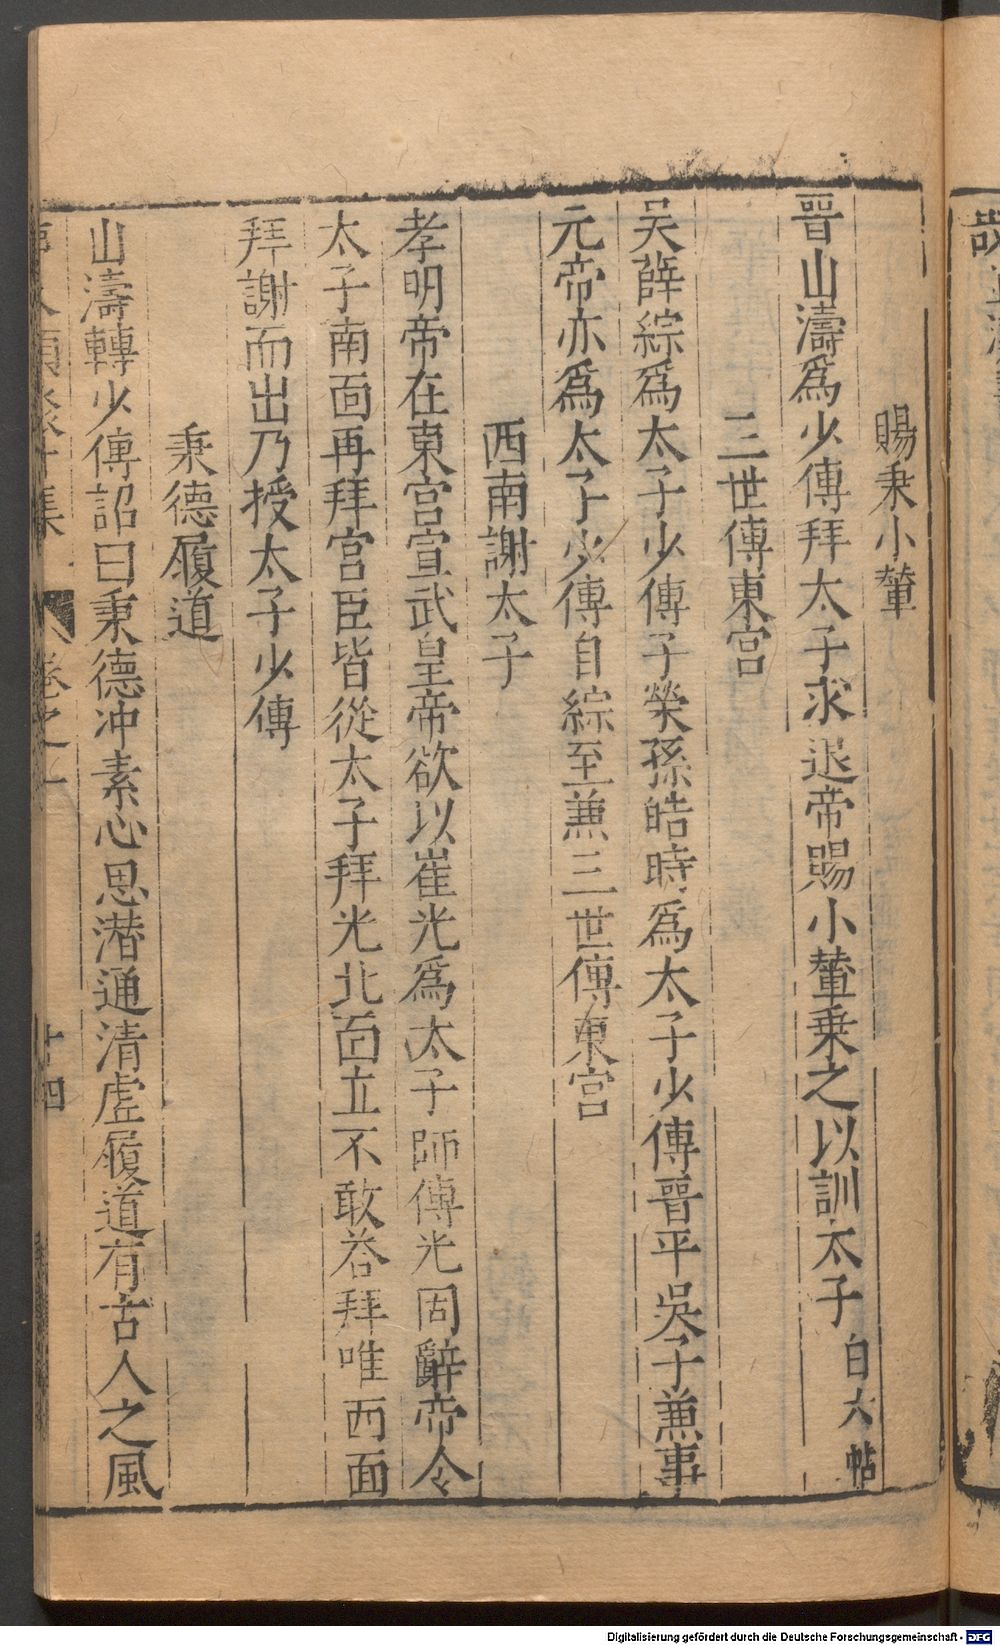 賜乗小輦
晉山濤爲少傅拜太子求退帝賜小輦乗之以訓太子白六帖
三世傳東宮
吴薛綜爲太子少傅子榮孫皓時爲太子少傅晉平吳子兼事
元帝亦爲太子少傅自綜至兼三世傳東宮
西南謝太子
孝明帝在東宮宣武皇帝欲以崔光爲太子師傅光固辭帝令
太子南面再拜宮臣皆從太子拜光北面立不敢荅拜唯西面
拜謝而出乃授太子少傅
秉德履道
山濤轉少傅詔曰秉德冲素心思潜通清虛履道有古人之風
集 卷之 十四
Digitalisierung gefördert durch die Deutsche Forschungsgemeinschaft - DFG